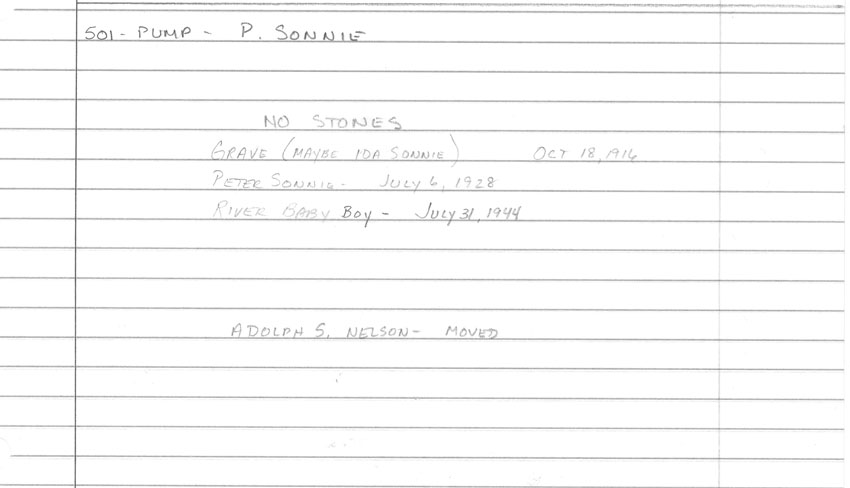 501 - PUMP - P. SONNIE
NO STONES
GRAVE (MAYBE IDA SONNIE) OCT 18, 1916
PETER SONNIE - JULY 6, 1928
RIVER BABY BOY - JULY 31, 1944
ADOLPH S. NELSON - MOVED